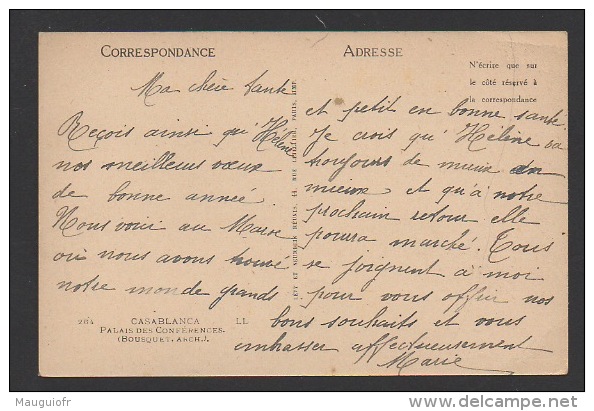 CORRESPONDANCE
ADRESSE
N'écrire que sur
le côté réservé à
la correspondance
Ma chère tante
Reçois ainsi qu'Hélène
nos meilleurs vœux
de bonne année.
Nous voici au Maroc
où nous avons trouvé
notre monde grands
et petit en bonne santé
Je crois qu'Hélène va
toujours de mieux en
mieux et qu'à notre
prochain retour elle
pourra marcher. Tous
se joignent à moi
pour vous offrir nos
bons souhaits et vous
embrasser affectueusement
Marie
LÉVY ET NEURDEIN RÉUNIS, 44, RUE LETELLIER, PARIS, IMP.
284 CASABLANCA LL
PALAIS DES CONFÉRENCES.
(BOUSQUET, ARCH.).
Mauguiofr
delcampe.net